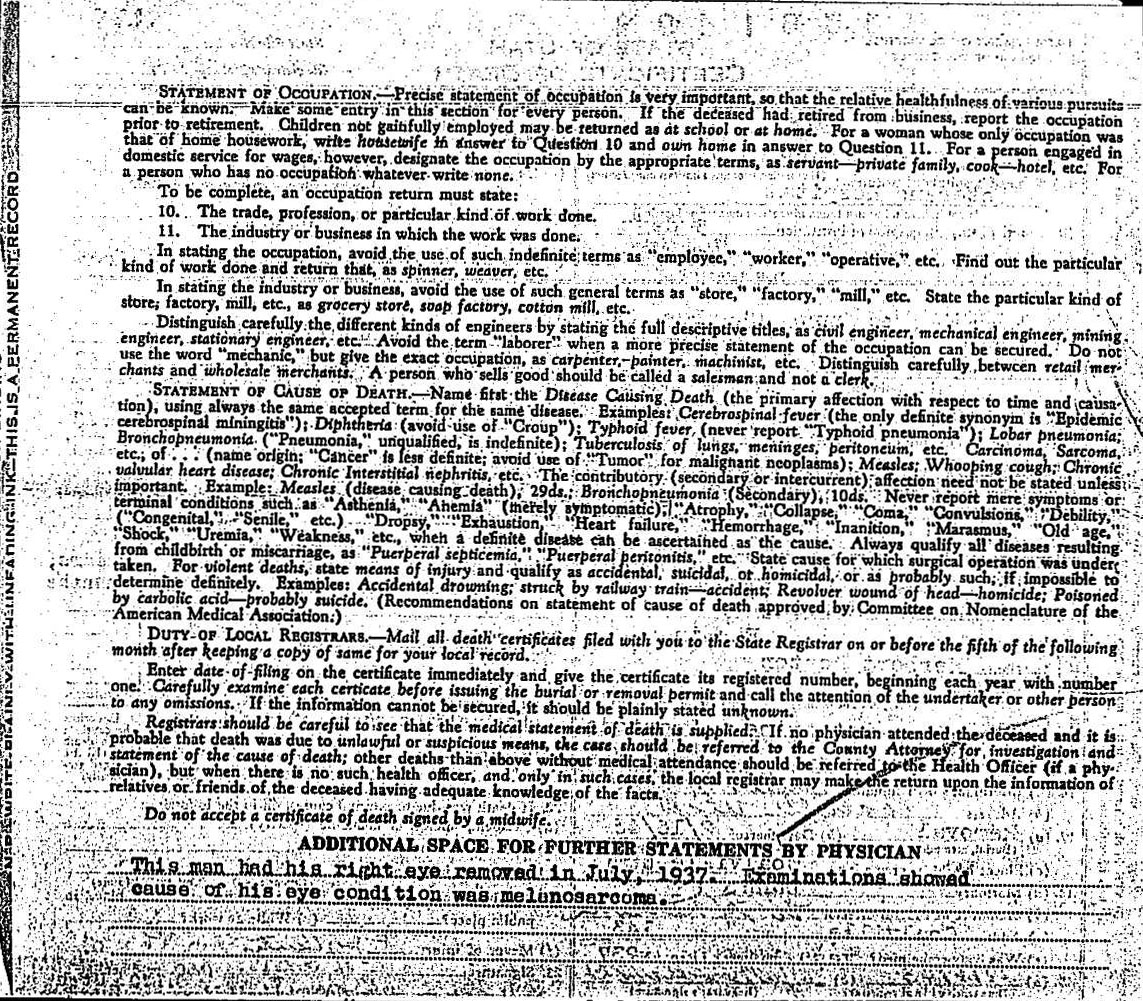 STATEMENT OF OCCUPATION.—Precise statement of occupation is very important, so that the relative healthfulness of various pursuits
can be known. Make some entry in this section for every person. If the deceased had retired from business, report the occupation
prior to retirement. Children not gainfully employed may be returned as at school or at home. For a woman whose only occupation was
that of home housework, write housewife in answer to Question 10 and own home in answer to Question 11. For a person engaged in
domestic service for wages, however, designate the occupation by the appropriate terms, as servant—private family, cook—hotel, etc. For
a person who has no occupation whatever write none.
To be complete, an occupation return must state:
10. The trade, profession, or particular kind of work done.
11. The industry or business in which the work was done.
In stating the occupation, avoid the use of such indefinite terms as "employee," "worker," "operative," etc. Find out the particular
kind of work done and return that, as spinner, weaver, etc.
In stating the industry or business, avoid the use of such general terms as "store," "factory," "mill," etc. State the particular kind of
store, factory, mill, etc., as grocery store, soap factory, cotton mill, etc.
Distinguish carefully the different kinds of engineers by stating the full descriptive titles, as civil engineer, mechanical engineer, mining
engineer, stationary engineer, etc. Avoid the term "laborer" when a more precise statement of the occupation can be secured. Do not
use the word "mechanic," but give the exact occupation, as carpenter, painter, machinist, etc. Distinguish carefully between retail mer-
chants and wholesale merchants. A person who sells good should be called a salesman and not a clerk.
STATEMENT OF CAUSE OF DEATH.—Name first the Disease Causing Death (the primary affection with respect to time and causa-
tion), using always the same accepted term for the same disease. Examples: Cerebrospinal fever (the only definite synonym is "Epidemic
cerebrospinal miningitis"); Diphtheria (avoid use of "Croup"); Typhoid fever (never report "Typhoid pneumonia"); Lobar pneumonia;
Bronchopneumonia ("Pneumonia," unqualified, is indefinite); Tuberculosis of lungs, meninges, peritoneum, etc. Carcinoma, Sarcoma,
etc., of . . . (name origin; "Cancer" is less definite; avoid use of "Tumor" for malignant neoplasms); Measles; Whooping cough; Chronic
valvular heart disease; Chronic Interstitial nephritis, etc. The contributory (secondary or intercurrent) affection need not be stated unless
important. Example: Measles (disease causing death), 29ds.; Bronchopneumonia (Secondary), 10ds. Never report mere symptoms or
terminal conditions such as "Asthenia," "Anemia" (merely symptomatic), "Atrophy," "Collapse," "Coma," "Convulsions," "Debility,"
("Congenital," "Senile," etc.) "Dropsy," "Exhaustion," "Heart failure," "Hemorrhage," "Inanition," "Marasmus," "Old age,"
"Shock," "Uremia," "Weakness," etc., when a definite disease can be ascertained as the cause. Always qualify all diseases resulting
from childbirth or miscarriage, as "Puerperal septicemia," "Puerperal peritonitis," etc. State cause for which surgical operation was under-
taken. For violent deaths, state means of injury and qualify as accidental, suicidal, or homicidal, or as probably such, if impossible to
determine definitely. Examples: Accidental drowning; struck by railway train—accident; Revolver wound of head—homicide; Poisoned
by carbolic acid—probably suicide. (Recommendations on statement of cause of death approved by Committee on Nomenclature of the
American Medical Association.)
DUTY OF LOCAL REGISTRARS.—Mail all death certificates filed with you to the State Registrar on or before the fifth of the following
month after keeping a copy of same for your local record.
Enter date of filing on the certificate immediately and give the certificate its registered number, beginning each year with number
one. Carefully examine each certicate before issuing the burial or removal permit and call the attention of the undertaker or other person
to any omissions. If the information cannot be secured, it should be plainly stated unknown.
Registrars should be careful to see that the medical statement of death is supplied. If no physician attended the deceased and it is
probable that death was due to unlawful or suspicious means, the case should be referred to the County Attorney for investigation and
statement of the cause of death; other deaths than above without medical attendance should be referred to the Health Officer (if a phy-
sician), but when there is no such health officer, and only in such cases, the local registrar may make the return upon the information of
relatives or friends of the deceased having adequate knowledge of the facts.
Do not accept a certificate of death signed by a midwife.
ADDITIONAL SPACE FOR FURTHER STATEMENTS BY PHYSICIAN
This man had his right eye removed in July, 1937. Examinations showed
cause of his eye condition was melanosarcoma.
WRITE PLAINLY WITH UNFADING INK—THIS IS A PERMANENT RECORD